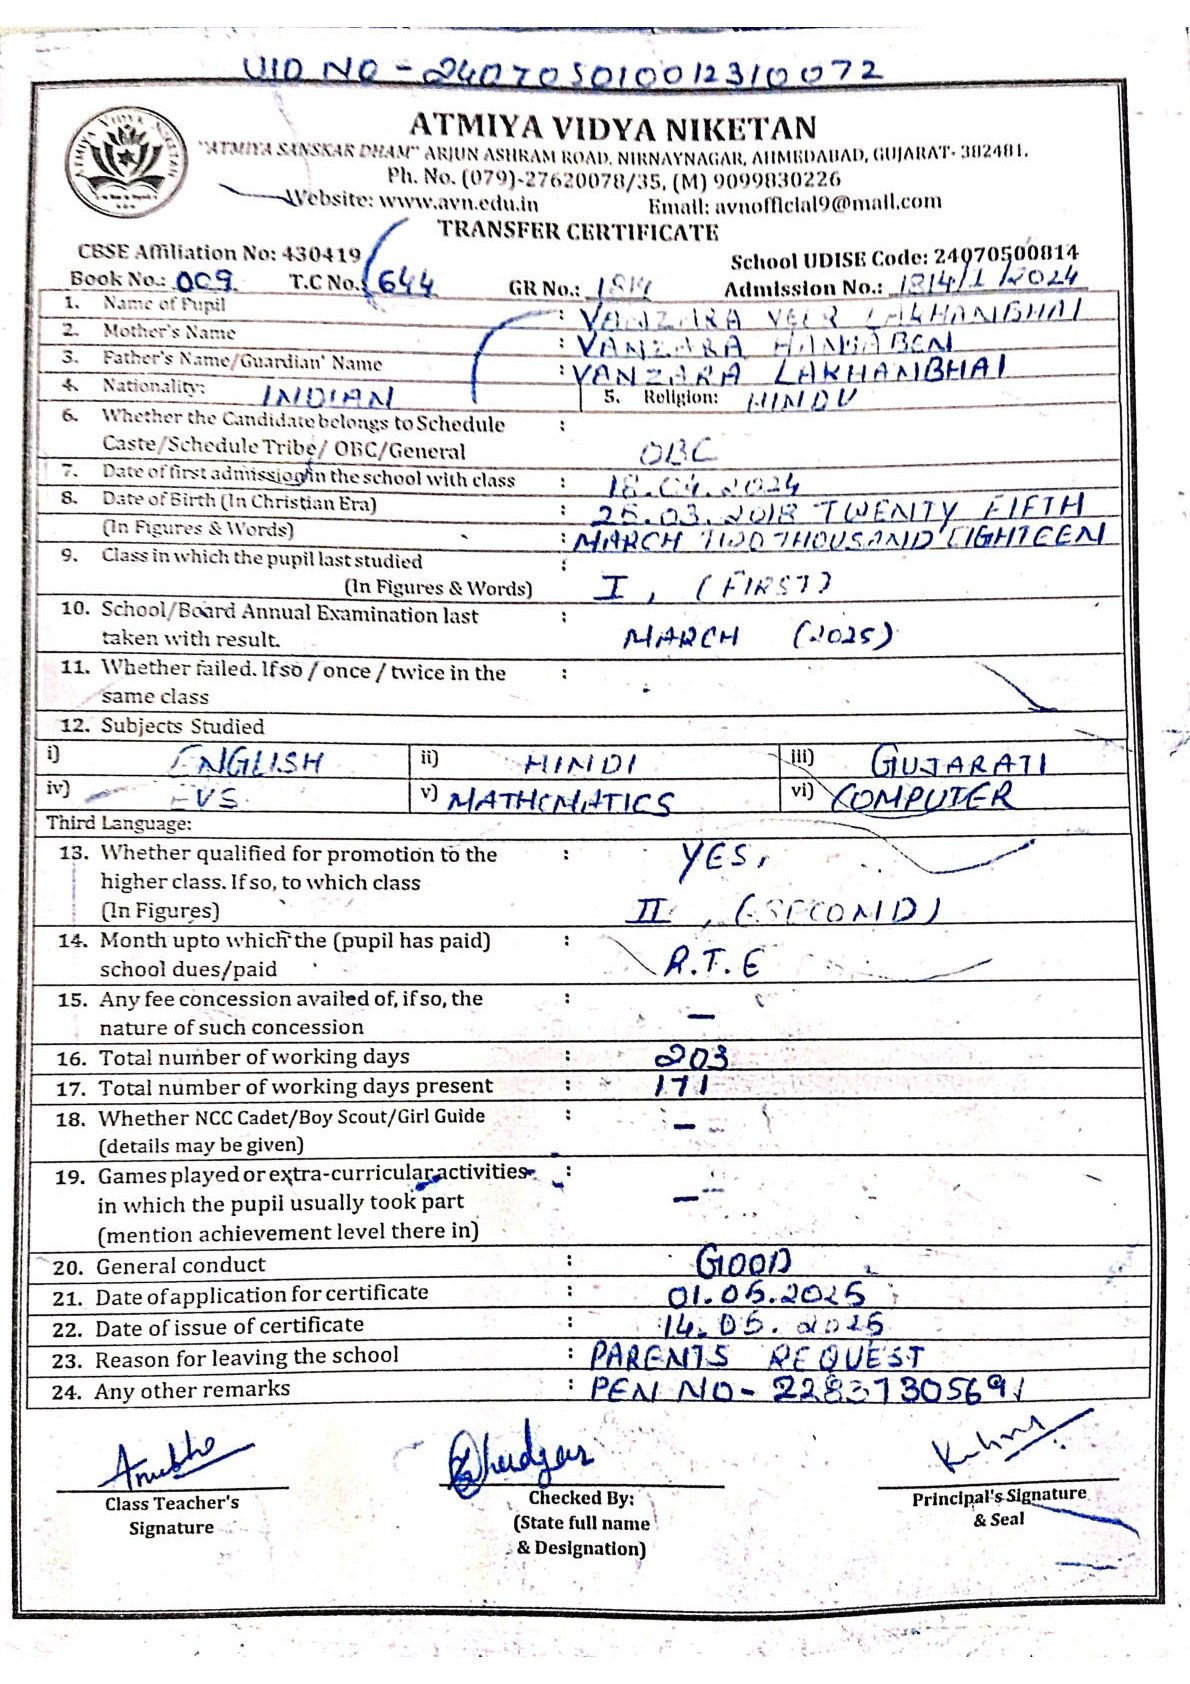 UID NO - 240705010012310072
ATMIYA VIDYA NIKETAN
ATMIYA VIDYA NIKETAN
"ATMIYA SANSKAR DHAM" ARJUN ASHRAM ROAD, NIRNAYNAGAR, AHMEDABAD, GUJARAT- 382481.
Ph. No. (079)-27620078/35, (M) 9099830226
Website: www.avn.edu.in Email: avnofficial9@mail.com
TRANSFER CERTIFICATE
CBSE Affiliation No: 430419 School UDISE Code: 24070500814
Book No.: 009 T.C No. 644 GR No.: 1814 Admission No.: 1814/1/2024
1. Name of Pupil : VANZARA VEER LAKHANBHAI
2. Mother's Name : VANZARA HANSABEN
3. Father's Name/Guardian' Name : VANZARA LAKHANBHAI
4. Nationality: INDIAN 5. Religion: HINDU
6. Whether the Candidate belongs to Schedule :
Caste/Schedule Tribe/ OBC/General OBC
7. Date of first admission in the school with class : 18.04.2024
8. Date of Birth (In Christian Era) : 25.03.2018 TWENTY FIFTH
(In Figures & Words) : MARCH TWO THOUSAND EIGHTEEN
9. Class in which the pupil last studied :
(In Figures & Words) I, (FIRST)
10. School/Board Annual Examination last :
taken with result. MARCH (2025)
11. Whether failed. If so / once / twice in the :
same class
12. Subjects Studied
i) ENGLISH ii) HINDI iii) GUJARATI
iv) EVS v) MATHEMATICS vi) COMPUTER
Third Language:
13. Whether qualified for promotion to the : YES,
higher class. If so, to which class
(In Figures) II, (SECOND)
14. Month upto which the (pupil has paid) :
school dues/paid R.T.E
15. Any fee concession availed of, if so, the :
nature of such concession —
16. Total number of working days : 203
17. Total number of working days present : 171
18. Whether NCC Cadet/Boy Scout/Girl Guide :
(details may be given) —
19. Games played or extra-curricular activities :
in which the pupil usually took part —
(mention achievement level there in)
20. General conduct : GOOD
21. Date of application for certificate : 01.05.2025
22. Date of issue of certificate : 14.05.2025
23. Reason for leaving the school : PARENTS REQUEST
24. Any other remarks : PEN NO- 22837305691
Class Teacher's Checked By: Principal's Signature
Signature (State full name & Seal
& Designation)